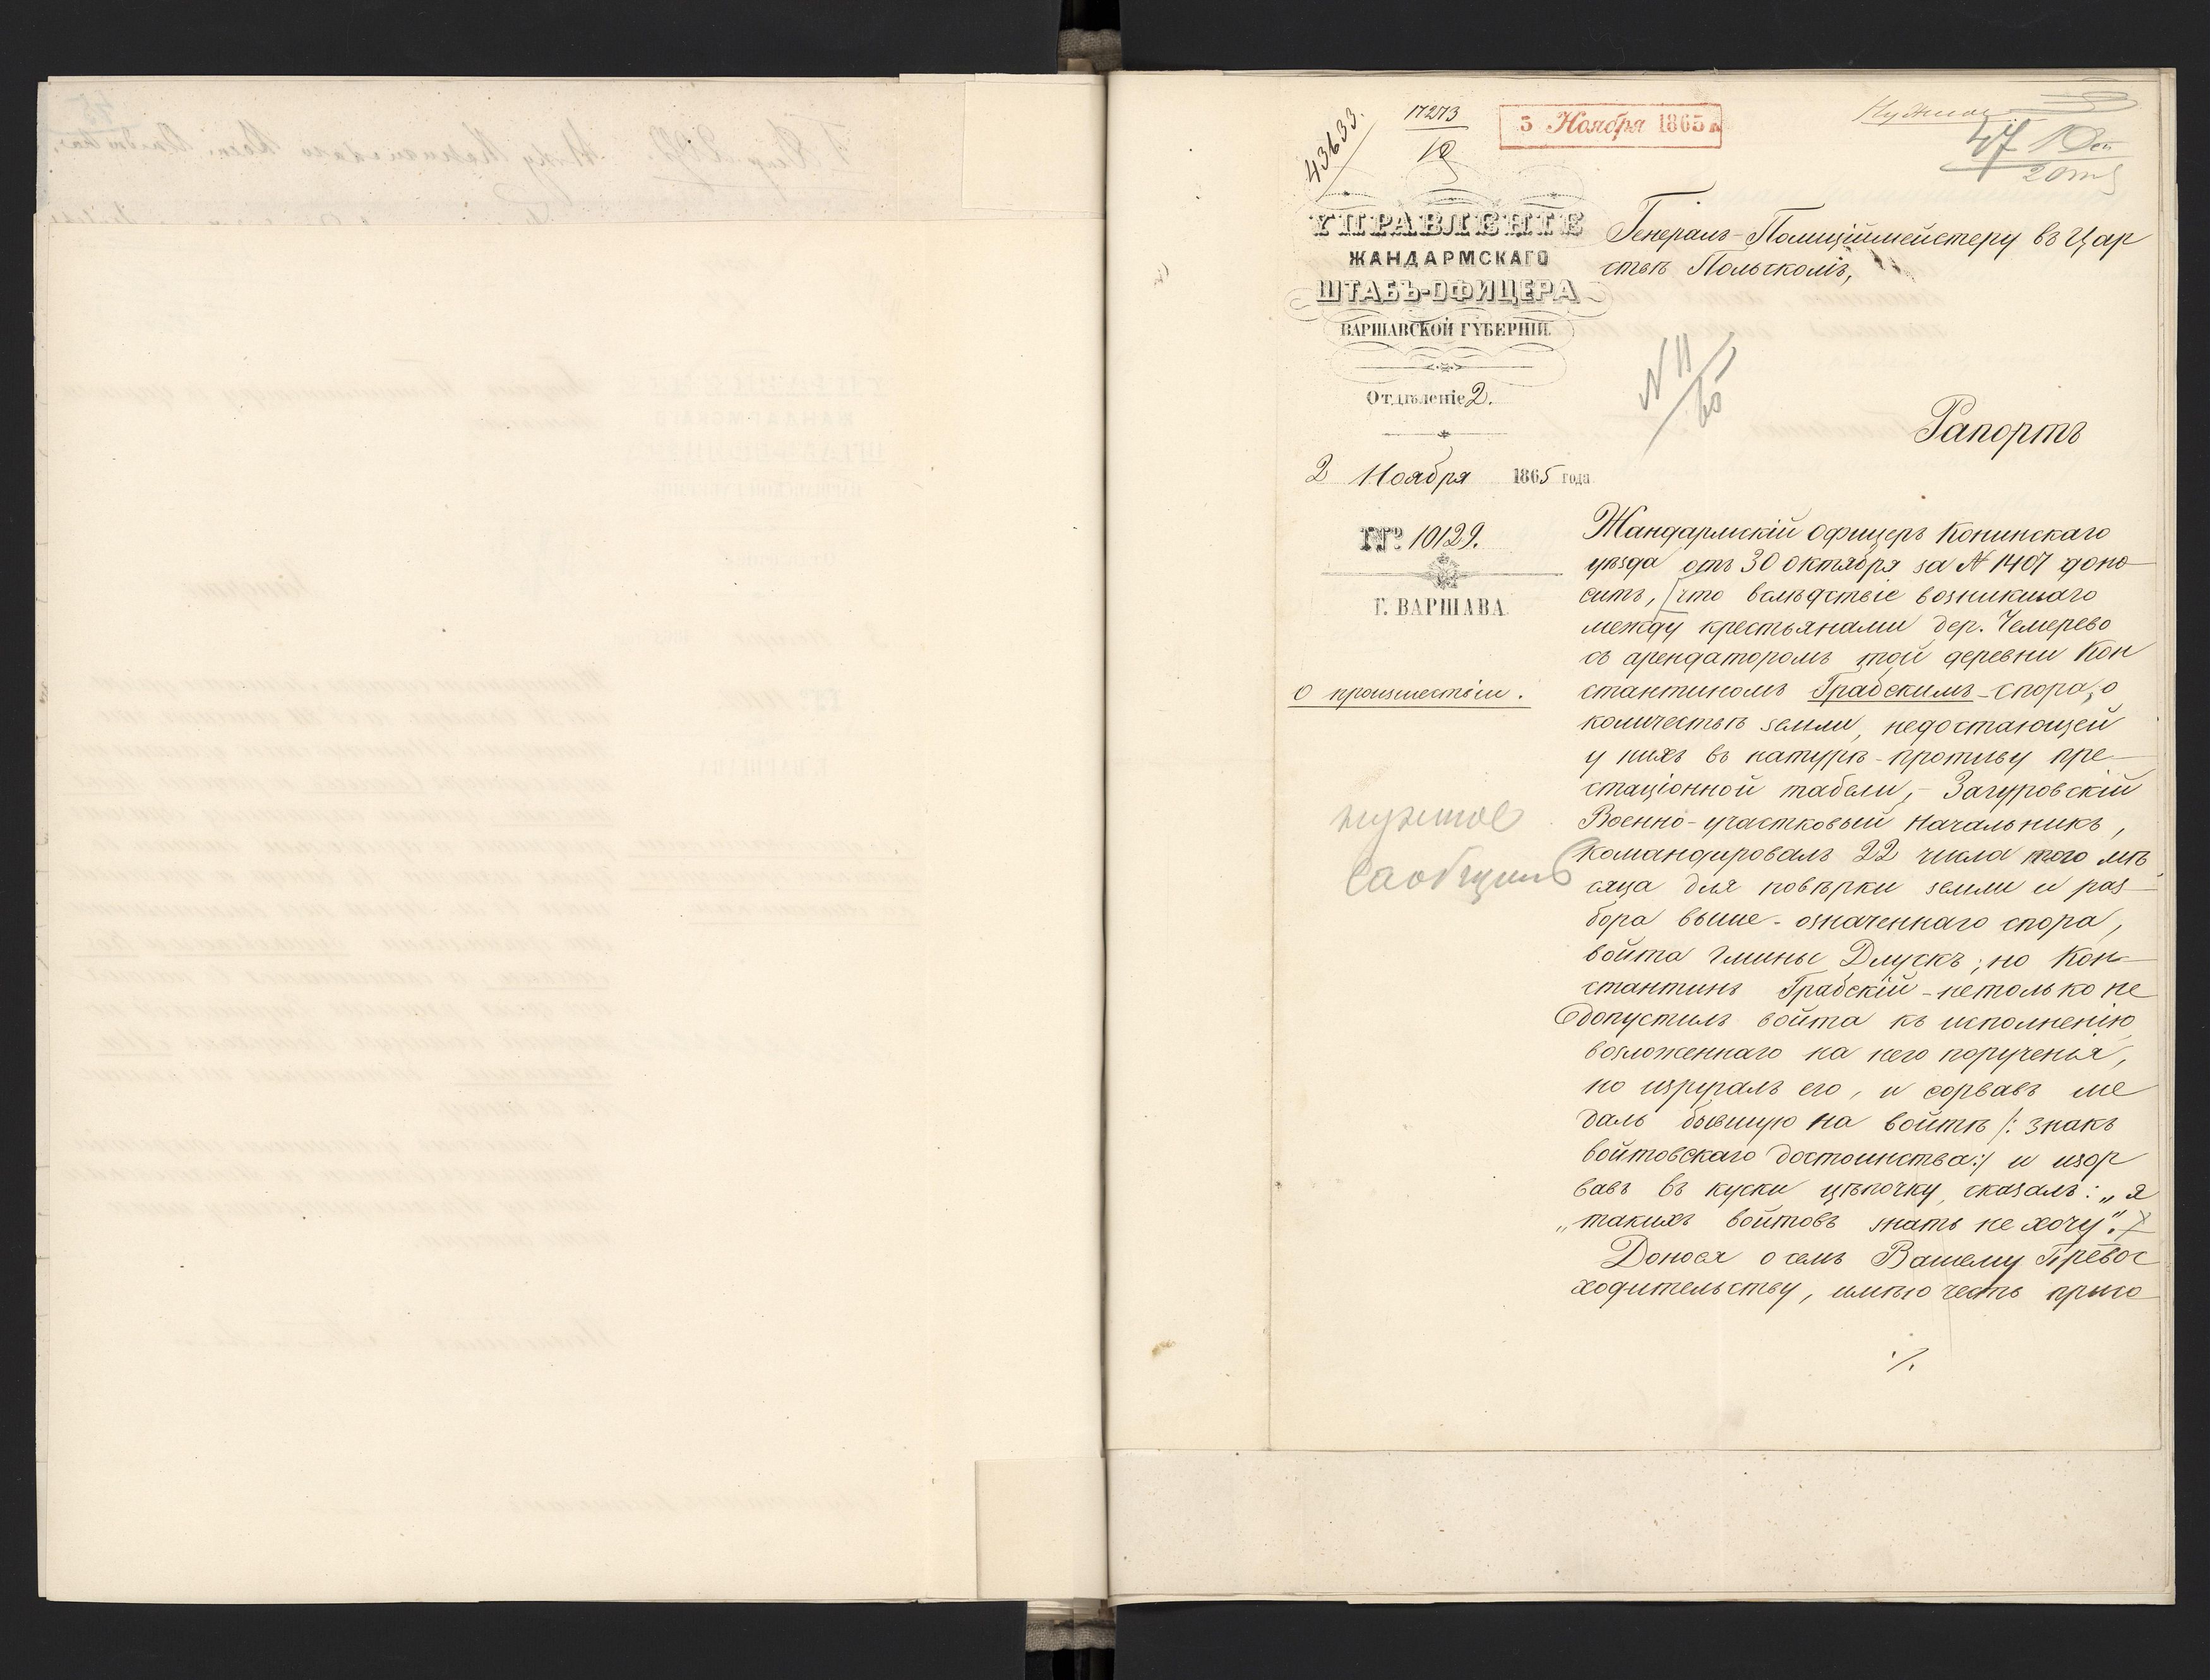 43633.
17273
5 Ноября 1865
47
УПРАВЛЕНІЕ
ЖАНДАРМСКАГО
ШТАБЪ-ОФИЦЕРА
ВАРШАВСКОЙ ГУБЕРНІИ.
Отдѣленіе 2.
2 Ноября 1865 года
№ 10129.
Г. ВАРШАВА
О произшествіи.
нужное
сообщить
Генералъ-Полиціймейстеру въ Цар
ствѣ Польскомъ,
N 11/65
Рапортъ
Жандармскій Офицеръ Конинскаго
уѣзда отъ 30 Октября за № 1407 доно-
ситъ, что вслѣдствіе возникшаго
между крестьянами дер. Чемерево
съ арендаторомъ той деревни Кон
стантиномъ Грабскимъ - спора, о
количествѣ земли, недостающей
у нихъ въ натурѣ - противу пре-
стаціонной табели, - Загуровскій
Военно-участковый Начальникъ,
командировалъ 22 числа того мѣ
сяца для повѣрки земли и раз-
бора выше-означеннаго спора,
войта гмины Длускъ; но Кон-
стантинъ Грабскій - нетолько не
допустилъ войта къ исполненію
возложеннаго на него порученія,
но изругалъ его, и сорвавъ ме
даль бывшую на войтѣ /: знакъ
войтовскаго достоинства:/ и изор
вавъ въ куски цѣпочку, сказалъ: „я
„такихъ войтовъ знать не хочу".
Донося о семъ Вашему Превос
ходительству, имѣю честь присо
./.